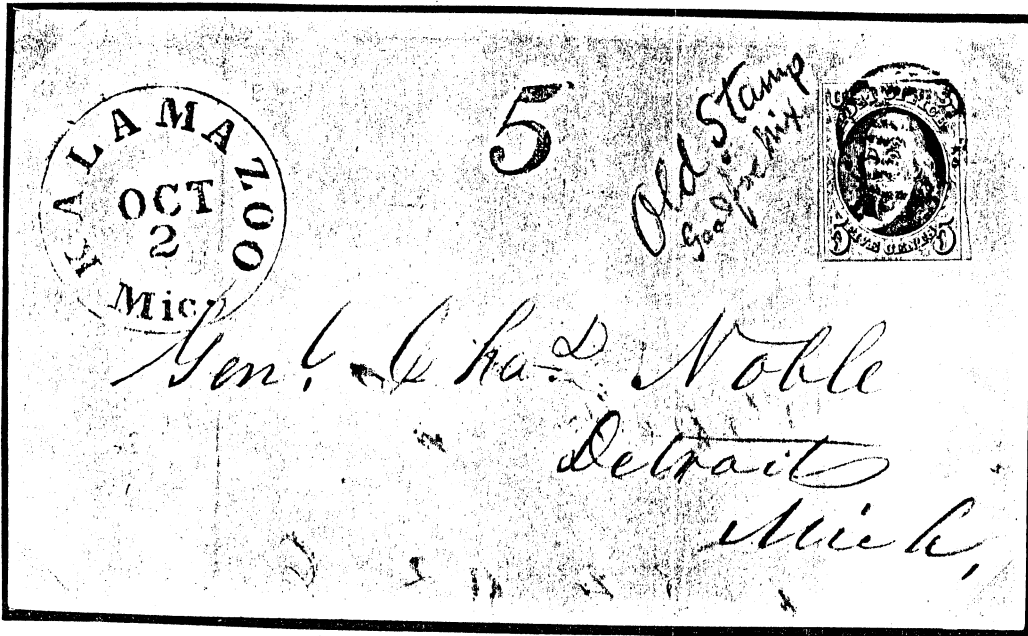 KALAMAZOO
OCT
2
Mich
5
Old Stamp
Good for nix
5 5
FIVE CENTS
Genl. Chas Noble
Detroit
Mich,